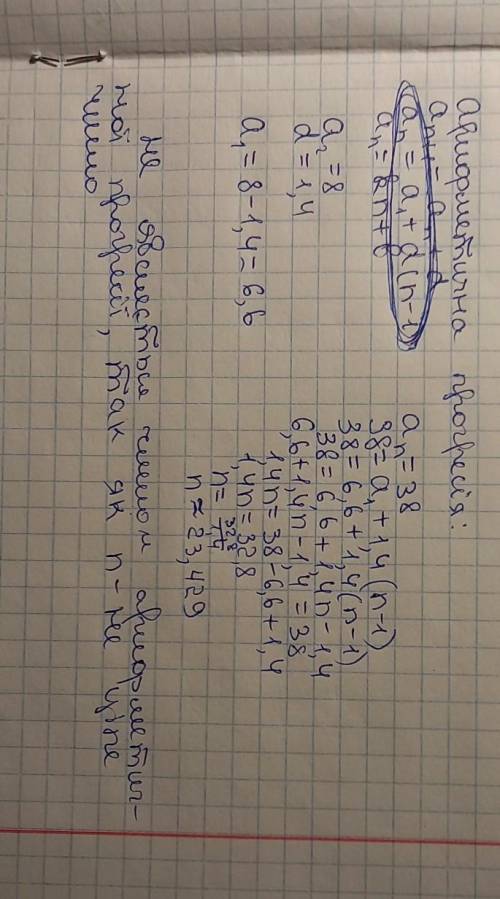 Арифметична прогресія:
aₙ₊₁ = aₙ + d
aₙ = a₁ + d(n-1)
aₙ = kn + b
a₂ = 8
d = 1,4
a₁ = 8 - 1,4 = 6,6
aₙ = 38
38 = a₁ + 1,4 (n-1)
38 = 6,6 + 1,4(n-1)
38 = 6,6 + 1,4n - 1,4
6,6 + 1,4n - 1,4 = 38
1,4n = 38 - 6,6 + 1,4
1,4n = 32,8
n = 32,8/1,4
n ≈ 23,429
Не являється числом арифметич-
ної прогресії, так як n - не ціле
число